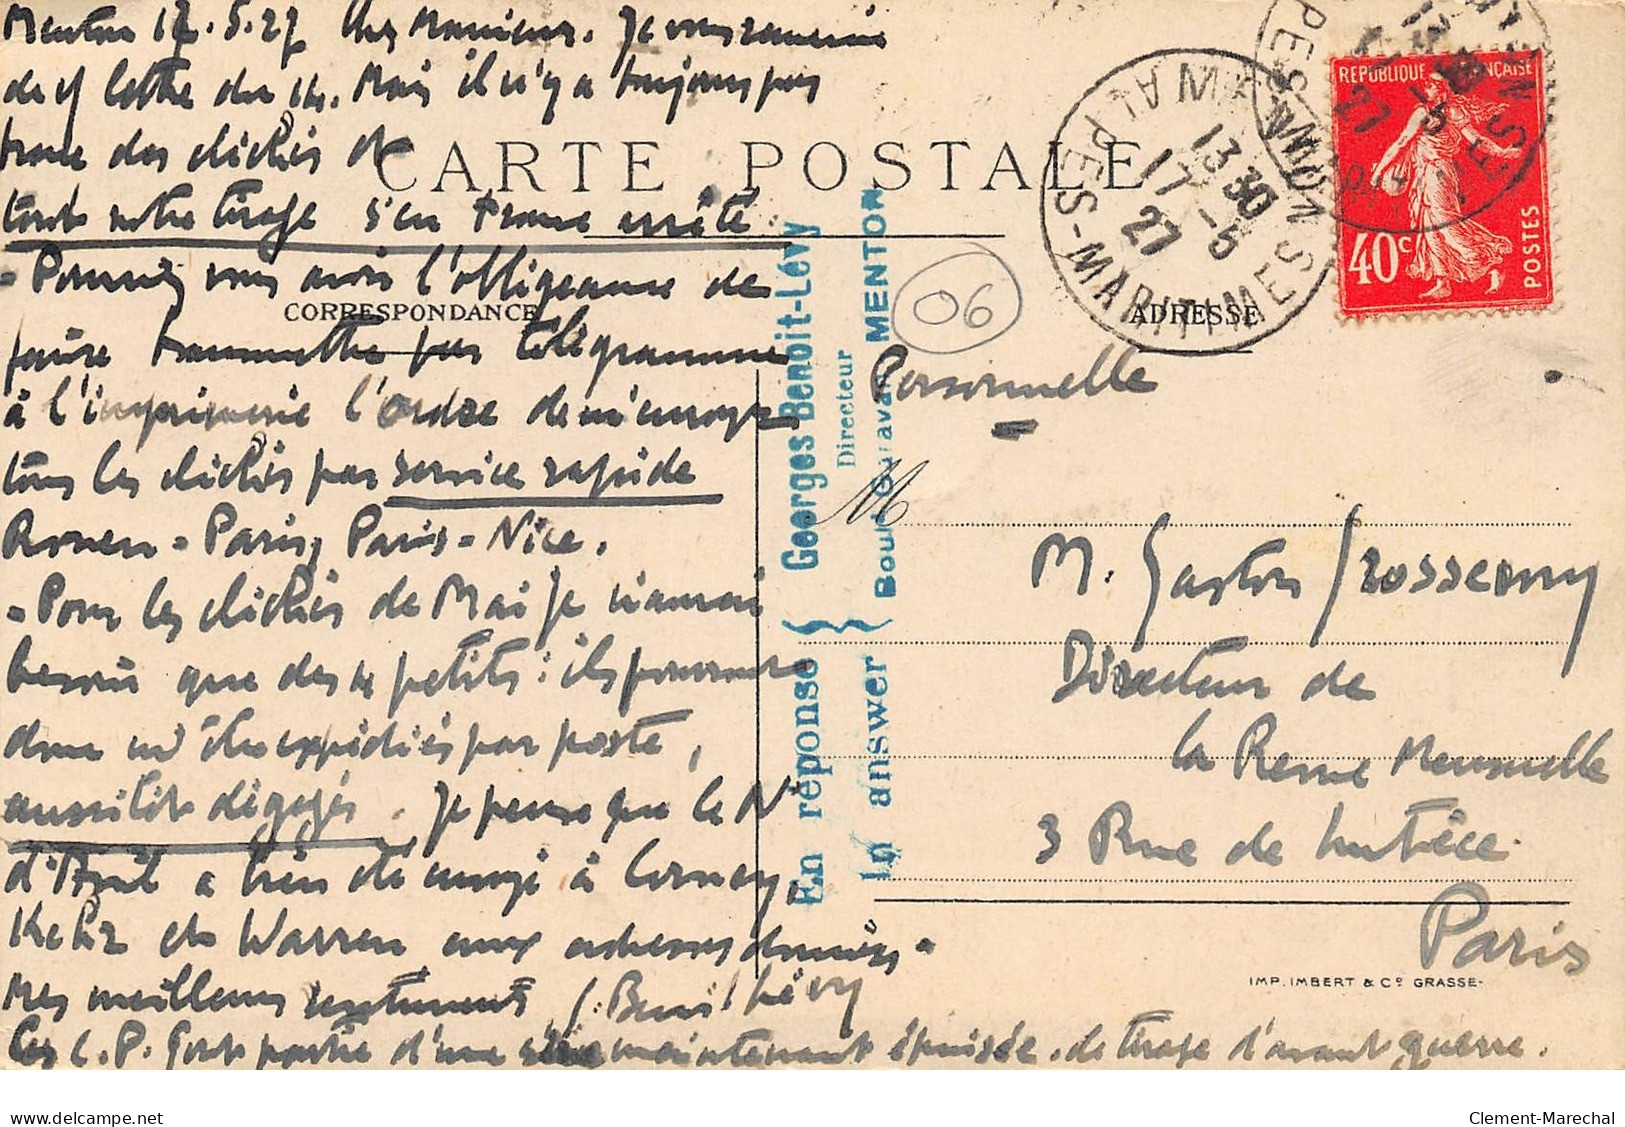 Menton 17.5.27 Cher Monsieur. Je vous remercie
de v/ lettre du 14. Mais il n'y a toujours pas
trace des clichés et
toute notre tirage s'en trouve arrêté.
- Pourriez vous avoir l'obligeance de
faire transmettre par télégramme
à l'imprimerie l'ordre de m'envoyer
tous les clichés par service rapide
Rouen - Paris, Paris - Nice.
- Pour les clichés de Mai je n'aurai
besoin que des 4 petits : ils pourront
donc m'être expédiés par poste,
aussitôt dégagés. Je pense que le N°
d'Avril a bien été envoyé à Corney,
et Warren aux adresses données.
Mes meilleurs sentiments G. Benoit Lévy
Ces C.P. font partie d'une série maintenant épuisée. de tirage d'avant guerre.
CARTE POSTALE
CORRESPONDANCE
ADRESSE
En réponse } Georges Benoit-Lévy
Directeur
In answer { Boul. Garavan MENTON
06
MENTON
ALPES-MARITIMES
13 30
17 -5
27
REPUBLIQUE FRANÇAISE
40c
POSTES
Personnelle
M
M. Gaston
Directeur de
la Revue Mensuelle
3 Rue de Lutèce.
Paris
IMP. IMBERT & Cº GRASSE-
delcampe.net
Clement-Marechal